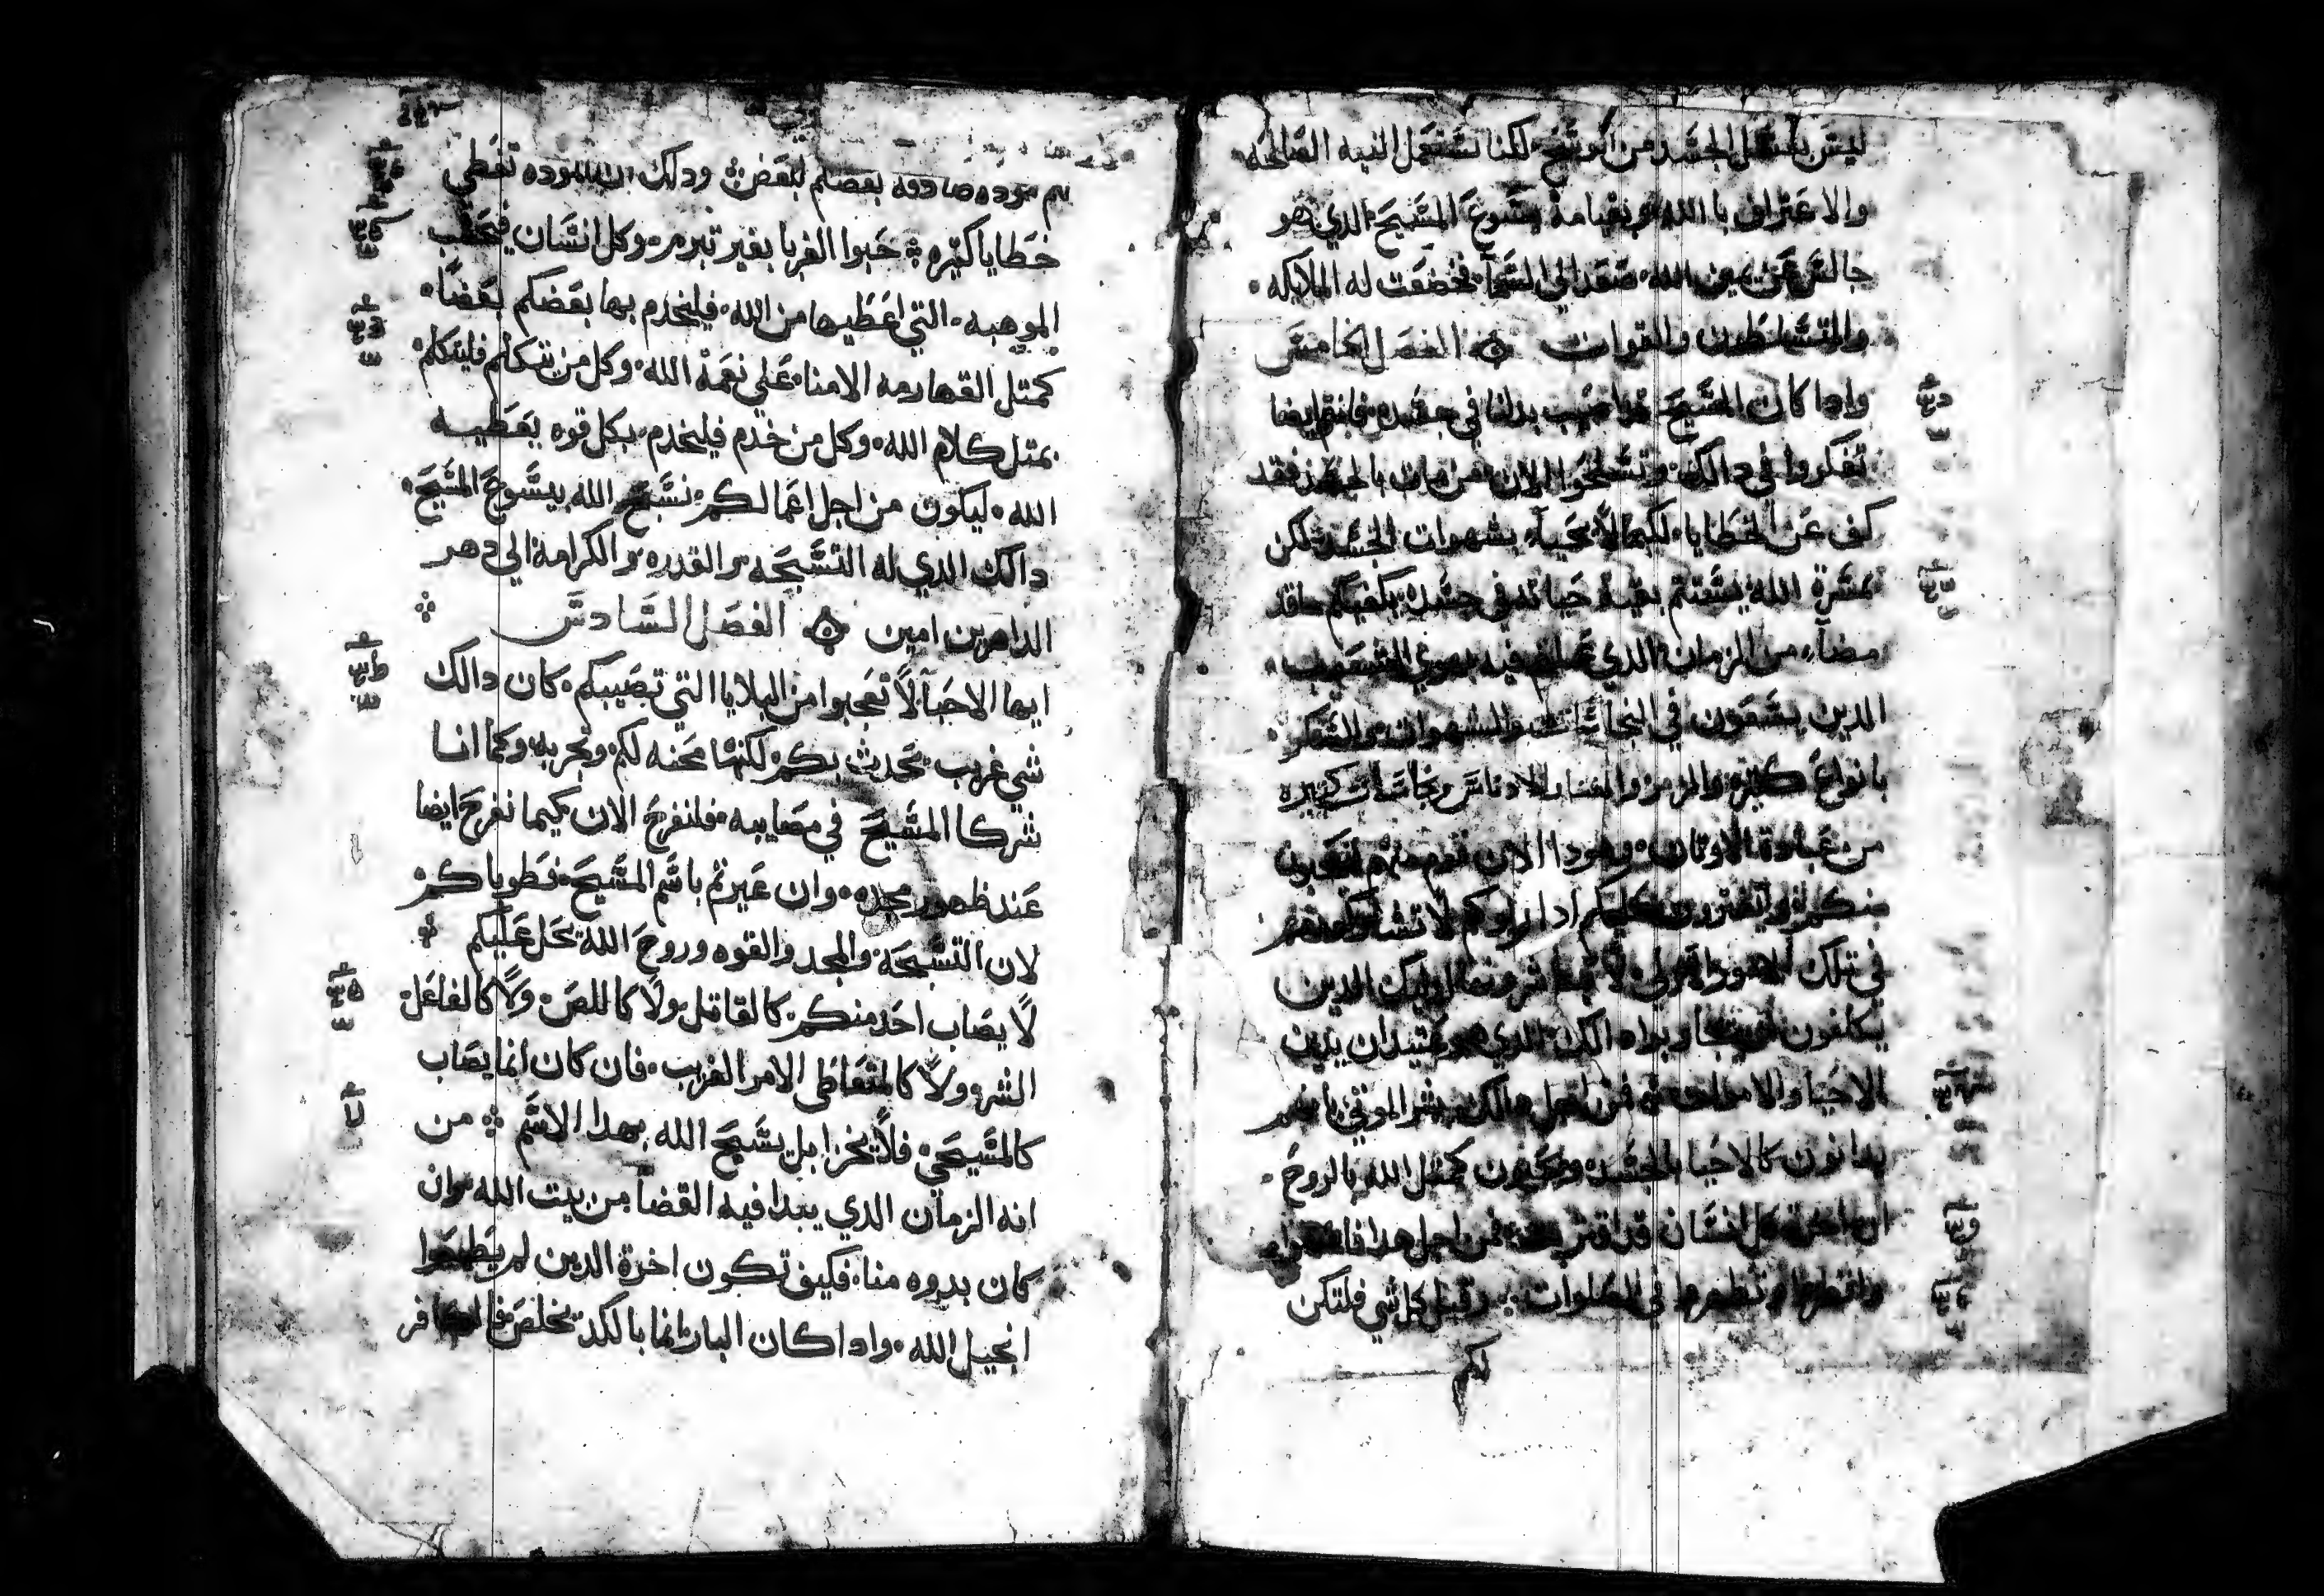 ليس بغسل الجسد من الوسخ لكنا نستعمل النيه الصالحه
والاعتراف باالله وبقيامة يسوع المسيح الدي هو
جالس عن يمين الله صعد الي السما فخضعت له الملايكه
والمتسلطون والقوات الفصل الخامس
وادا كان المسيح بدلنا في جسده فانتم ايضا
تفكروا في دالك وتسلحوا الان من مات بالجسد فقد
كف عن الخطايا لكيما لا يحيا بشهوات الجسد لكن
بمسرة الله بقية حياته في جسده يكفيكم ماقد
مضا من الزمان الدي فيه بهوي الشعوب
الدين يسعون في النجاسات والشهوات والسكر
بانواع كثيره والزمر والادناس ونجاسات كثيره
من عبادة الاوثان وهودا الان
منكم ويفترون عليكم ادا راوكم لا تشاركونهم
في تلك الامور الاولي اوليك الدين
الدي هو عتيد ان يدين
الاحيا والاموات فمن اجل دالك بشر الموتي بانهم
يدانون كالاحيا بالجسد ويحيون كمثل الله بالروح
ان اخرة كل انسان قد اقتربت فمن اجل هدا
في الصلوات وقبل كل شي فلتكن
لكم
موده صادقه بعضكم لبعض ودلك ان الموده تغطي
خطايا كثيره حبوا الغربا بغير تبرم وكل انسان فيحسب
الموهبه التي اعطيها من الله فليخدم بها بعضكم بعضا
كمتل القهارمه الامنا علي نعمة الله وكل من يتكلم فليتكلم
بمتل كلام الله وكل من خدم فليخدم بكل قوه يعطيه
الله ليكون من اجل اعمالكم نسبح الله بيسوع المسيح
دالك الدي له التسبحه والقدره والكرامة الي دهر
الداهرين امين الفصل السادس
ايها الاحبا لا تعجبوا من البلايا التي تصيبكم كان دالك
شي غريب يحدث بكم لكنها محنه لكم وتجربه وكما انا
شركا المسيح في مصايبه فلنفرح الان كيما نفرح ايضا
عند ظهور مجده وان عيرتم باسم المسيح فطوباكم
لان التسبحة والمجد والقوه وروح الله تحل عليكم
لا يصاب احد منكم كالقاتل ولا كاللص ولا كالفاعل
الشر ولا كالمتعاطي الامر الغريب فان كان انما يصاب
كالمسيحي فلا يخزا بل يسبح الله بهدا الاسم من
انه الزمان الدي يبدا فيه القضا من بيت الله وان
كان بدوه منا فكيف تكون اخرة الدين لم يطيعوا
انجيل الله وادا كان البار انما بالكد يخلص فالكافر